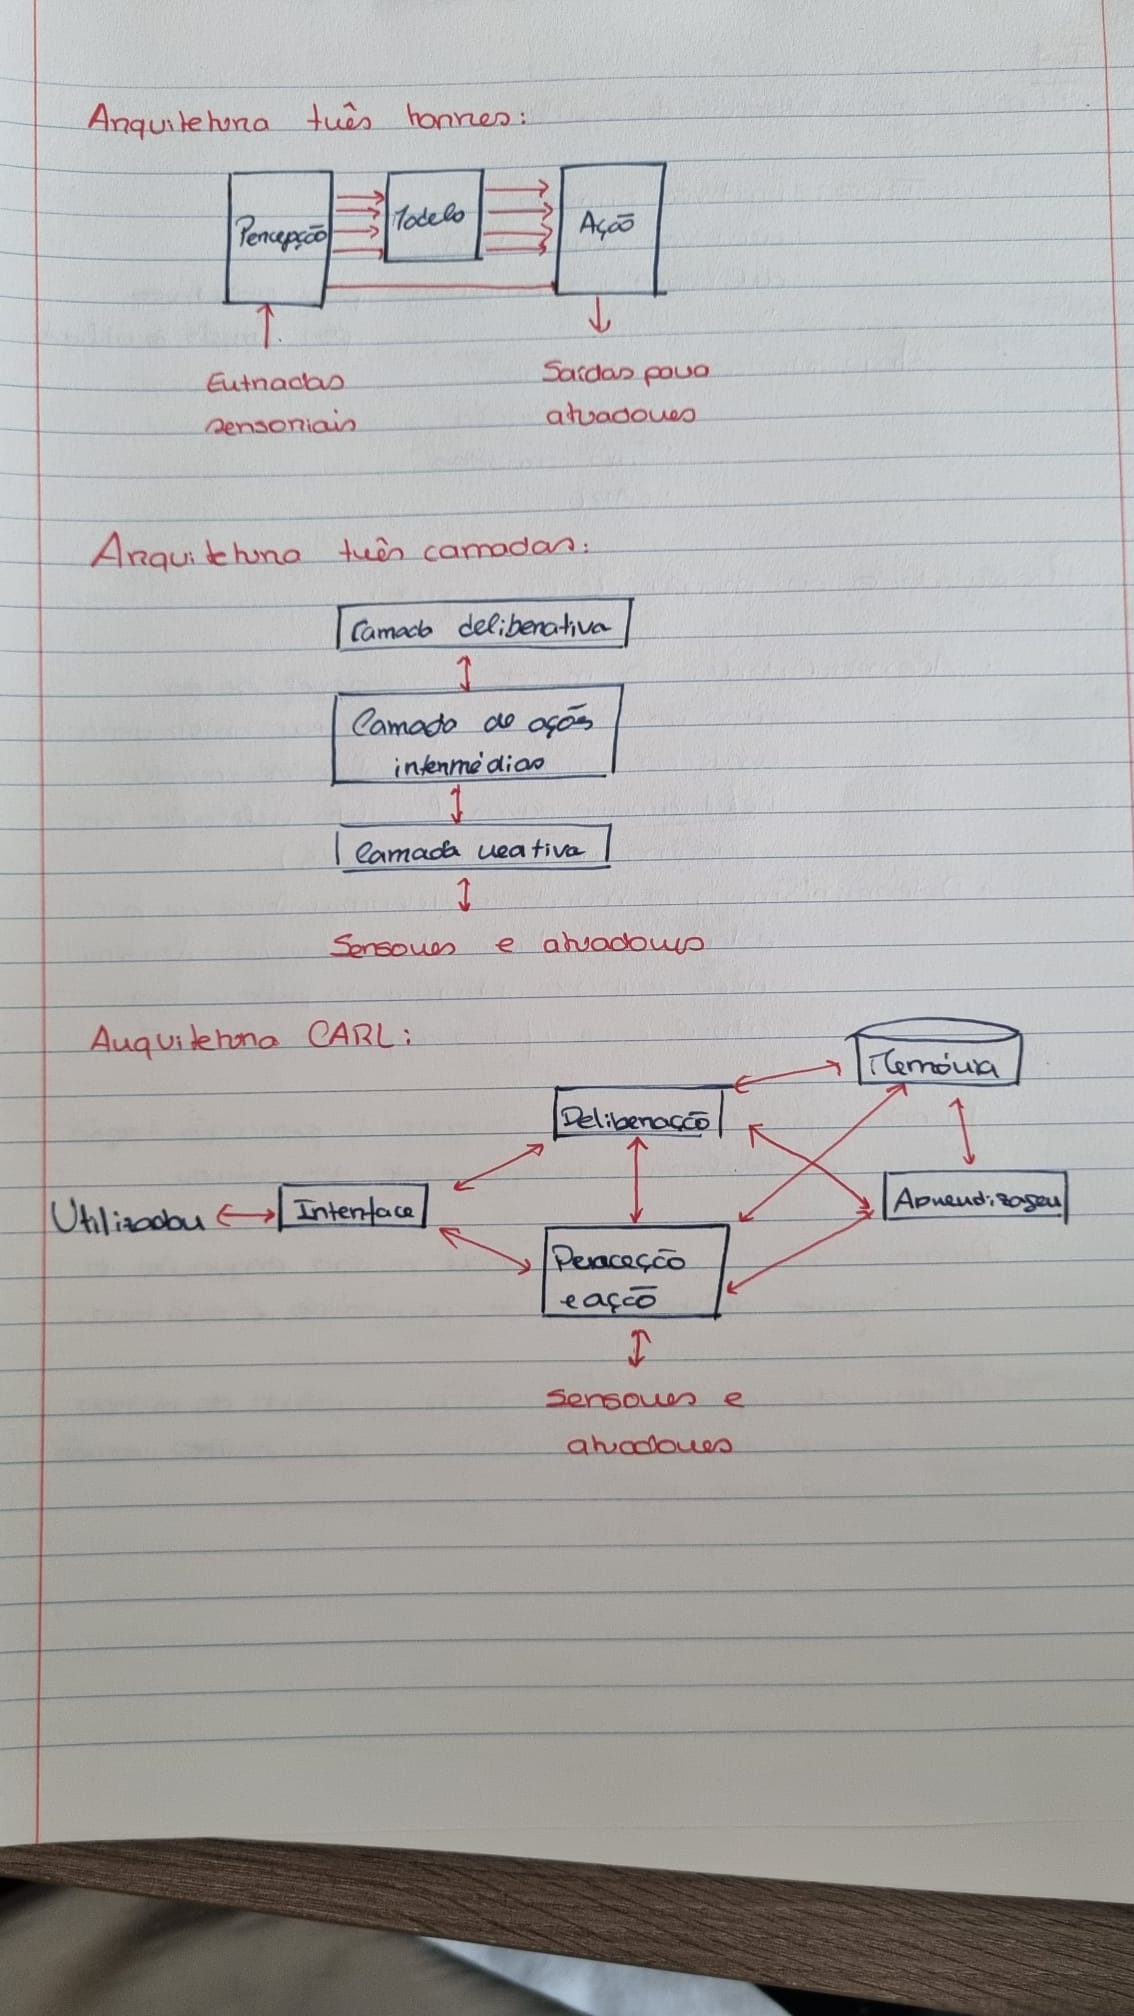 Arquitetura três torres:
Percepção
Modelo
Ação
Entradas
sensoriais
Saídas para
atuadores
Arquitetura três camadas:
Camada deliberativa
Camada de ações
intermédias
Camada reativa
Sensores e atuadores
Arquitetura CARL:
Memória
Deliberação
Aprendizagem
Utilizador
Interface
Perceção
e ação
Sensores e
atuadores